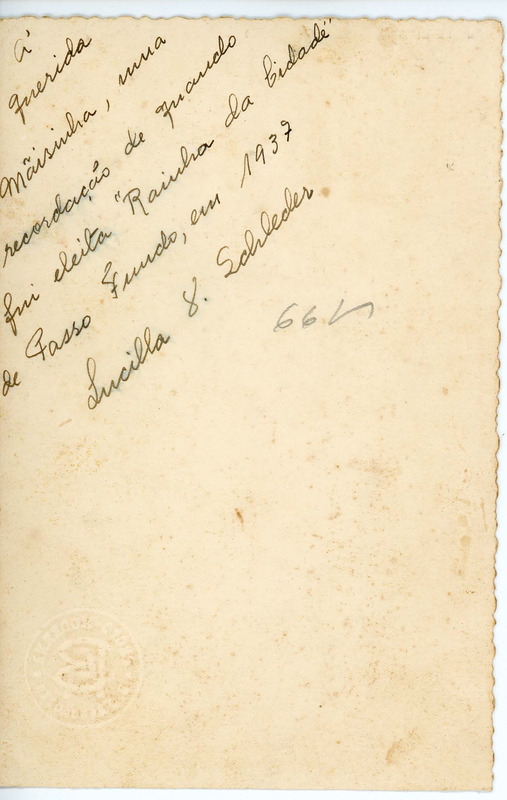 À
querida
Mãisinha, uma
recordação de quando
fui eleita "Rainha da Cidade"
de Passo Fundo, em 1937
Lucilla S. Schleder